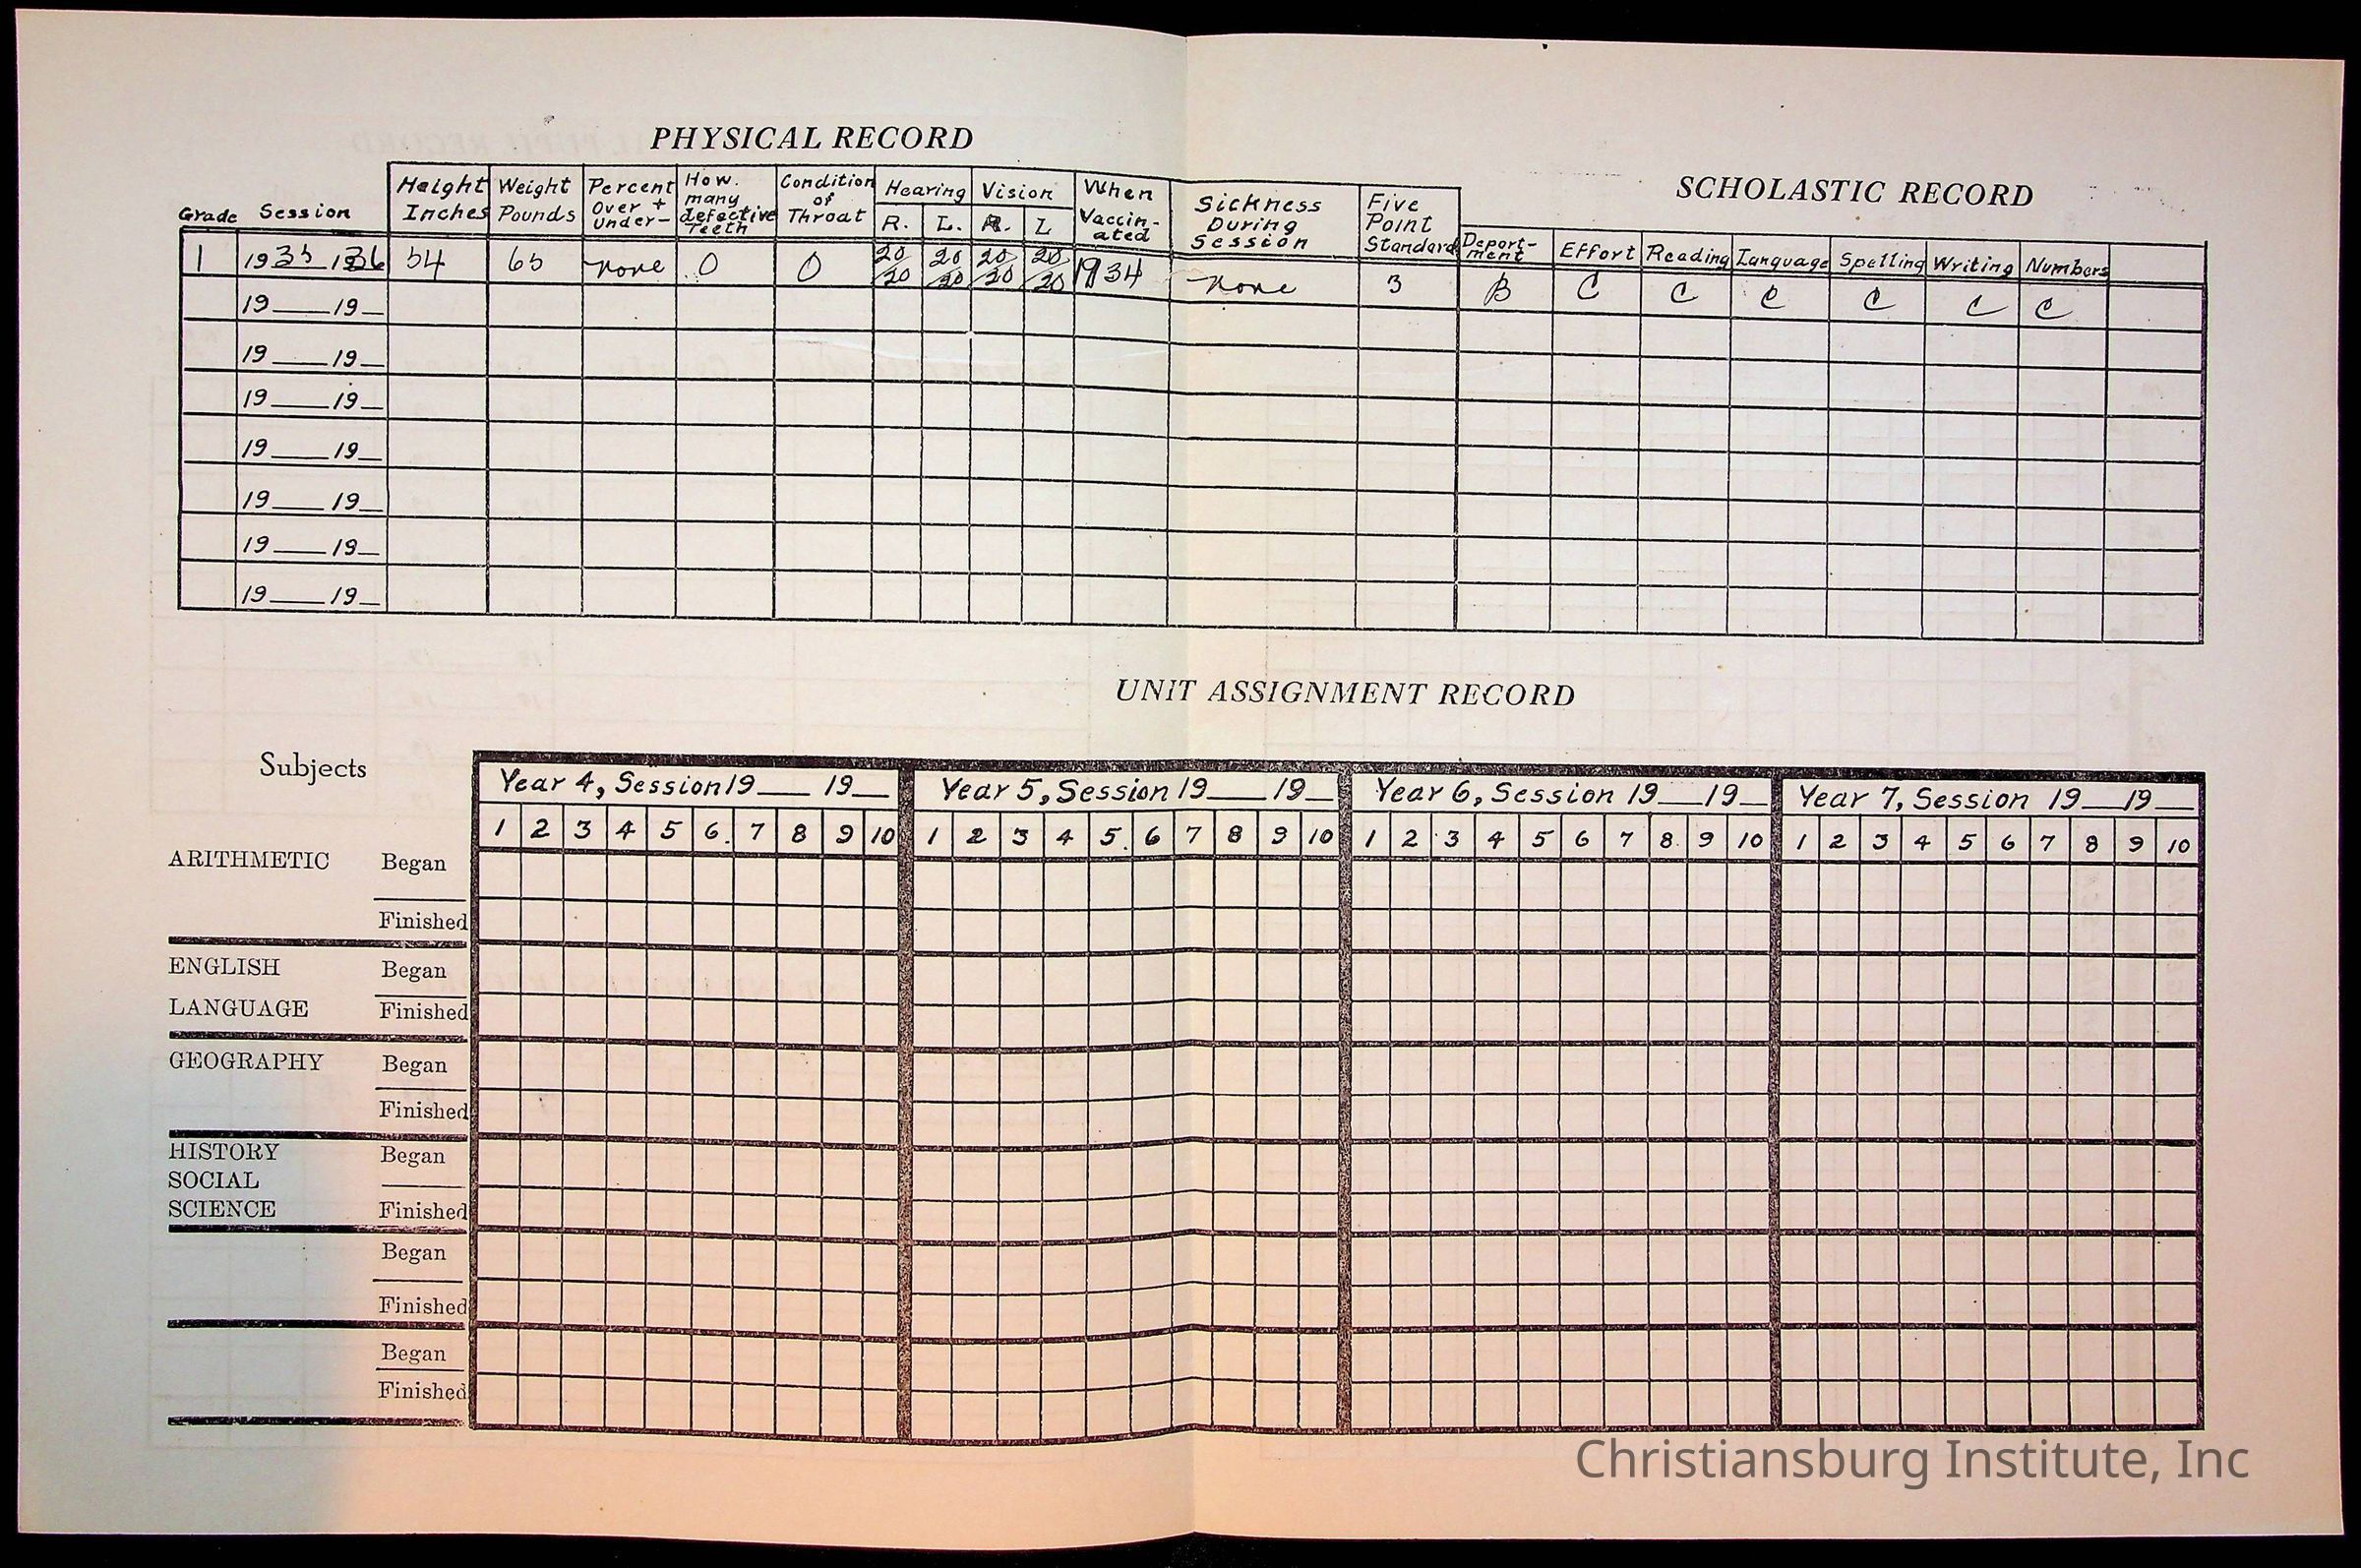 PHYSICAL RECORD
SCHOLASTIC RECORD
Grade Session Height Inches Weight Pounds Percent Over + Under - How many defective Teeth Condition of Throat Hearing R. L. Vision R. L When Vaccin-ated Sickness During Session Five Point Standard Deport-ment Effort Reading Language Spelling Writing Numbers
1 1935 1936 54 65 none 0 0 20/20 20/20 20/20 20/20 1934 none 3 B C C C C C C
19 19
19 19
19 19
19 19
19 19
19 19
19 19
UNIT ASSIGNMENT RECORD
Subjects
Year 4, Session 19 19 Year 5, Session 19 19 Year 6, Session 19 19 Year 7, Session 19 19
1 2 3 4 5 6 7 8 9 10 1 2 3 4 5 6 7 8 9 10 1 2 3 4 5 6 7 8 9 10 1 2 3 4 5 6 7 8 9 10
ARITHMETIC Began
Finished
ENGLISH Began
LANGUAGE Finished
GEOGRAPHY Began
Finished
HISTORY Began
SOCIAL
SCIENCE Finished
Began
Finished
Began
Finished
Christiansburg Institute, Inc